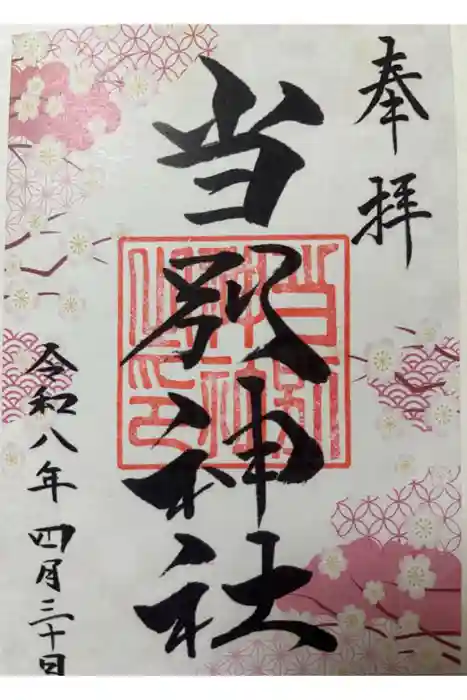 奉拝
当別神社
当別
神社
之印
令和八年四月三十日